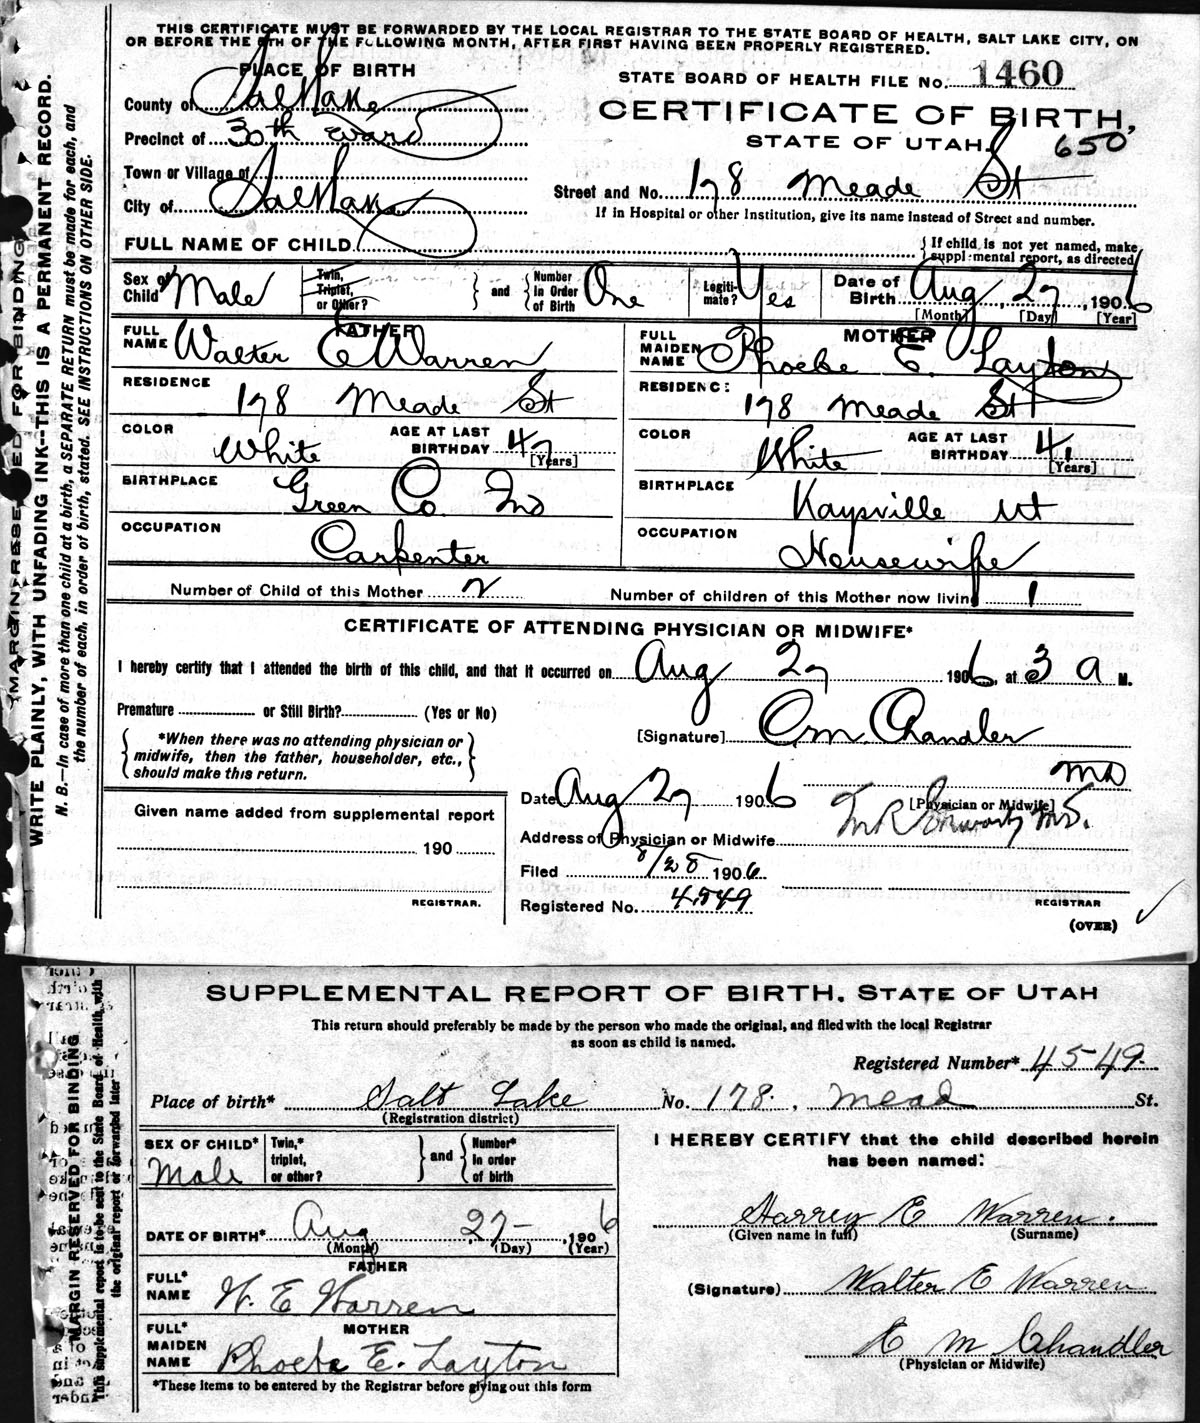 THIS CERTIFICATE MUST BE FORWARDED BY THE LOCAL REGISTRAR TO THE STATE BOARD OF HEALTH, SALT LAKE CITY, ON
OR BEFORE THE 5TH OF THE FOLLOWING MONTH, AFTER FIRST HAVING BEEN PROPERLY REGISTERED.
PLACE OF BIRTH
STATE BOARD OF HEALTH FILE No. 1460
County of Salt Lake
CERTIFICATE OF BIRTH,
Precinct of 30th ward
STATE OF UTAH. 650
Town or Village of
Street and No. 178 Meade St
City of Salt Lake
If in Hospital or other Institution, give its name instead of Street and number.
FULL NAME OF CHILD
If child is not yet named, make
supplemental report, as directed
Sex of Child Male
Twin, Triplet, or Other?
and
Number in Order of Birth One
Legitimate? Yes
Date of Birth Aug 27, 1906
[Month] [Day] [Year]
FATHER
FULL NAME Walter E Warren
MOTHER
FULL MAIDEN NAME Phoebe E. Layton
RESIDENCE
178 Meade St
RESIDENCE
178 Meade St
COLOR White AGE AT LAST BIRTHDAY 47 [Years]
COLOR White AGE AT LAST BIRTHDAY 41 [Years]
BIRTHPLACE Green Co Ind
BIRTHPLACE Kaysville Ut
OCCUPATION Carpenter
OCCUPATION Housewife
Number of Child of this Mother 2
Number of children of this Mother now living 1
CERTIFICATE OF ATTENDING PHYSICIAN OR MIDWIFE*
I hereby certify that I attended the birth of this child, and that it occurred on Aug 27 1906, at 3 a M.
Premature or Still Birth? (Yes or No)
[Signature] C. M. Chandler
*When there was no attending physician or
midwife, then the father, householder, etc.,
should make this return.
MD
[Physician or Midwife]
Date Aug 27 1906
Given name added from supplemental report
Address of Physician or Midwife
190
Filed 8/28 1906
REGISTRAR.
Registered No. 4549
REGISTRAR
(OVER)
MARGIN RESERVED FOR BINDING
WRITE PLAINLY, WITH UNFADING INK--THIS IS A PERMANENT RECORD.
N. B.--In case of more than one child at a birth, a SEPARATE RETURN must be made for each, and
the number of each, in order of birth, stated. SEE INSTRUCTIONS ON OTHER SIDE.
SUPPLEMENTAL REPORT OF BIRTH. STATE OF UTAH
This return should preferably be made by the person who made the original, and filed with the local Registrar
as soon as child is named.
Registered Number* 4549
Place of birth* Salt Lake No. 178, Mead St.
(Registration district)
SEX OF CHILD* Male
Twin,* triplet, or other?
and
Number* in order of birth
I HEREBY CERTIFY that the child described herein
has been named:
DATE OF BIRTH* Aug 27 - 1906
(Month) (Day) (Year)
Harrey E Warren.
(Given name in full) (Surname)
FATHER
FULL* NAME W. E Warren
(Signature) Walter E Warren
MOTHER
FULL* MAIDEN NAME Phoebe E. Layton
C M Chandler
(Physician or Midwife)
*These items to be entered by the Registrar before giving out this form
MARGIN RESERVED FOR BINDING
This supplemental report is to be sent to the State Board of Health, with
the original report or forwarded later